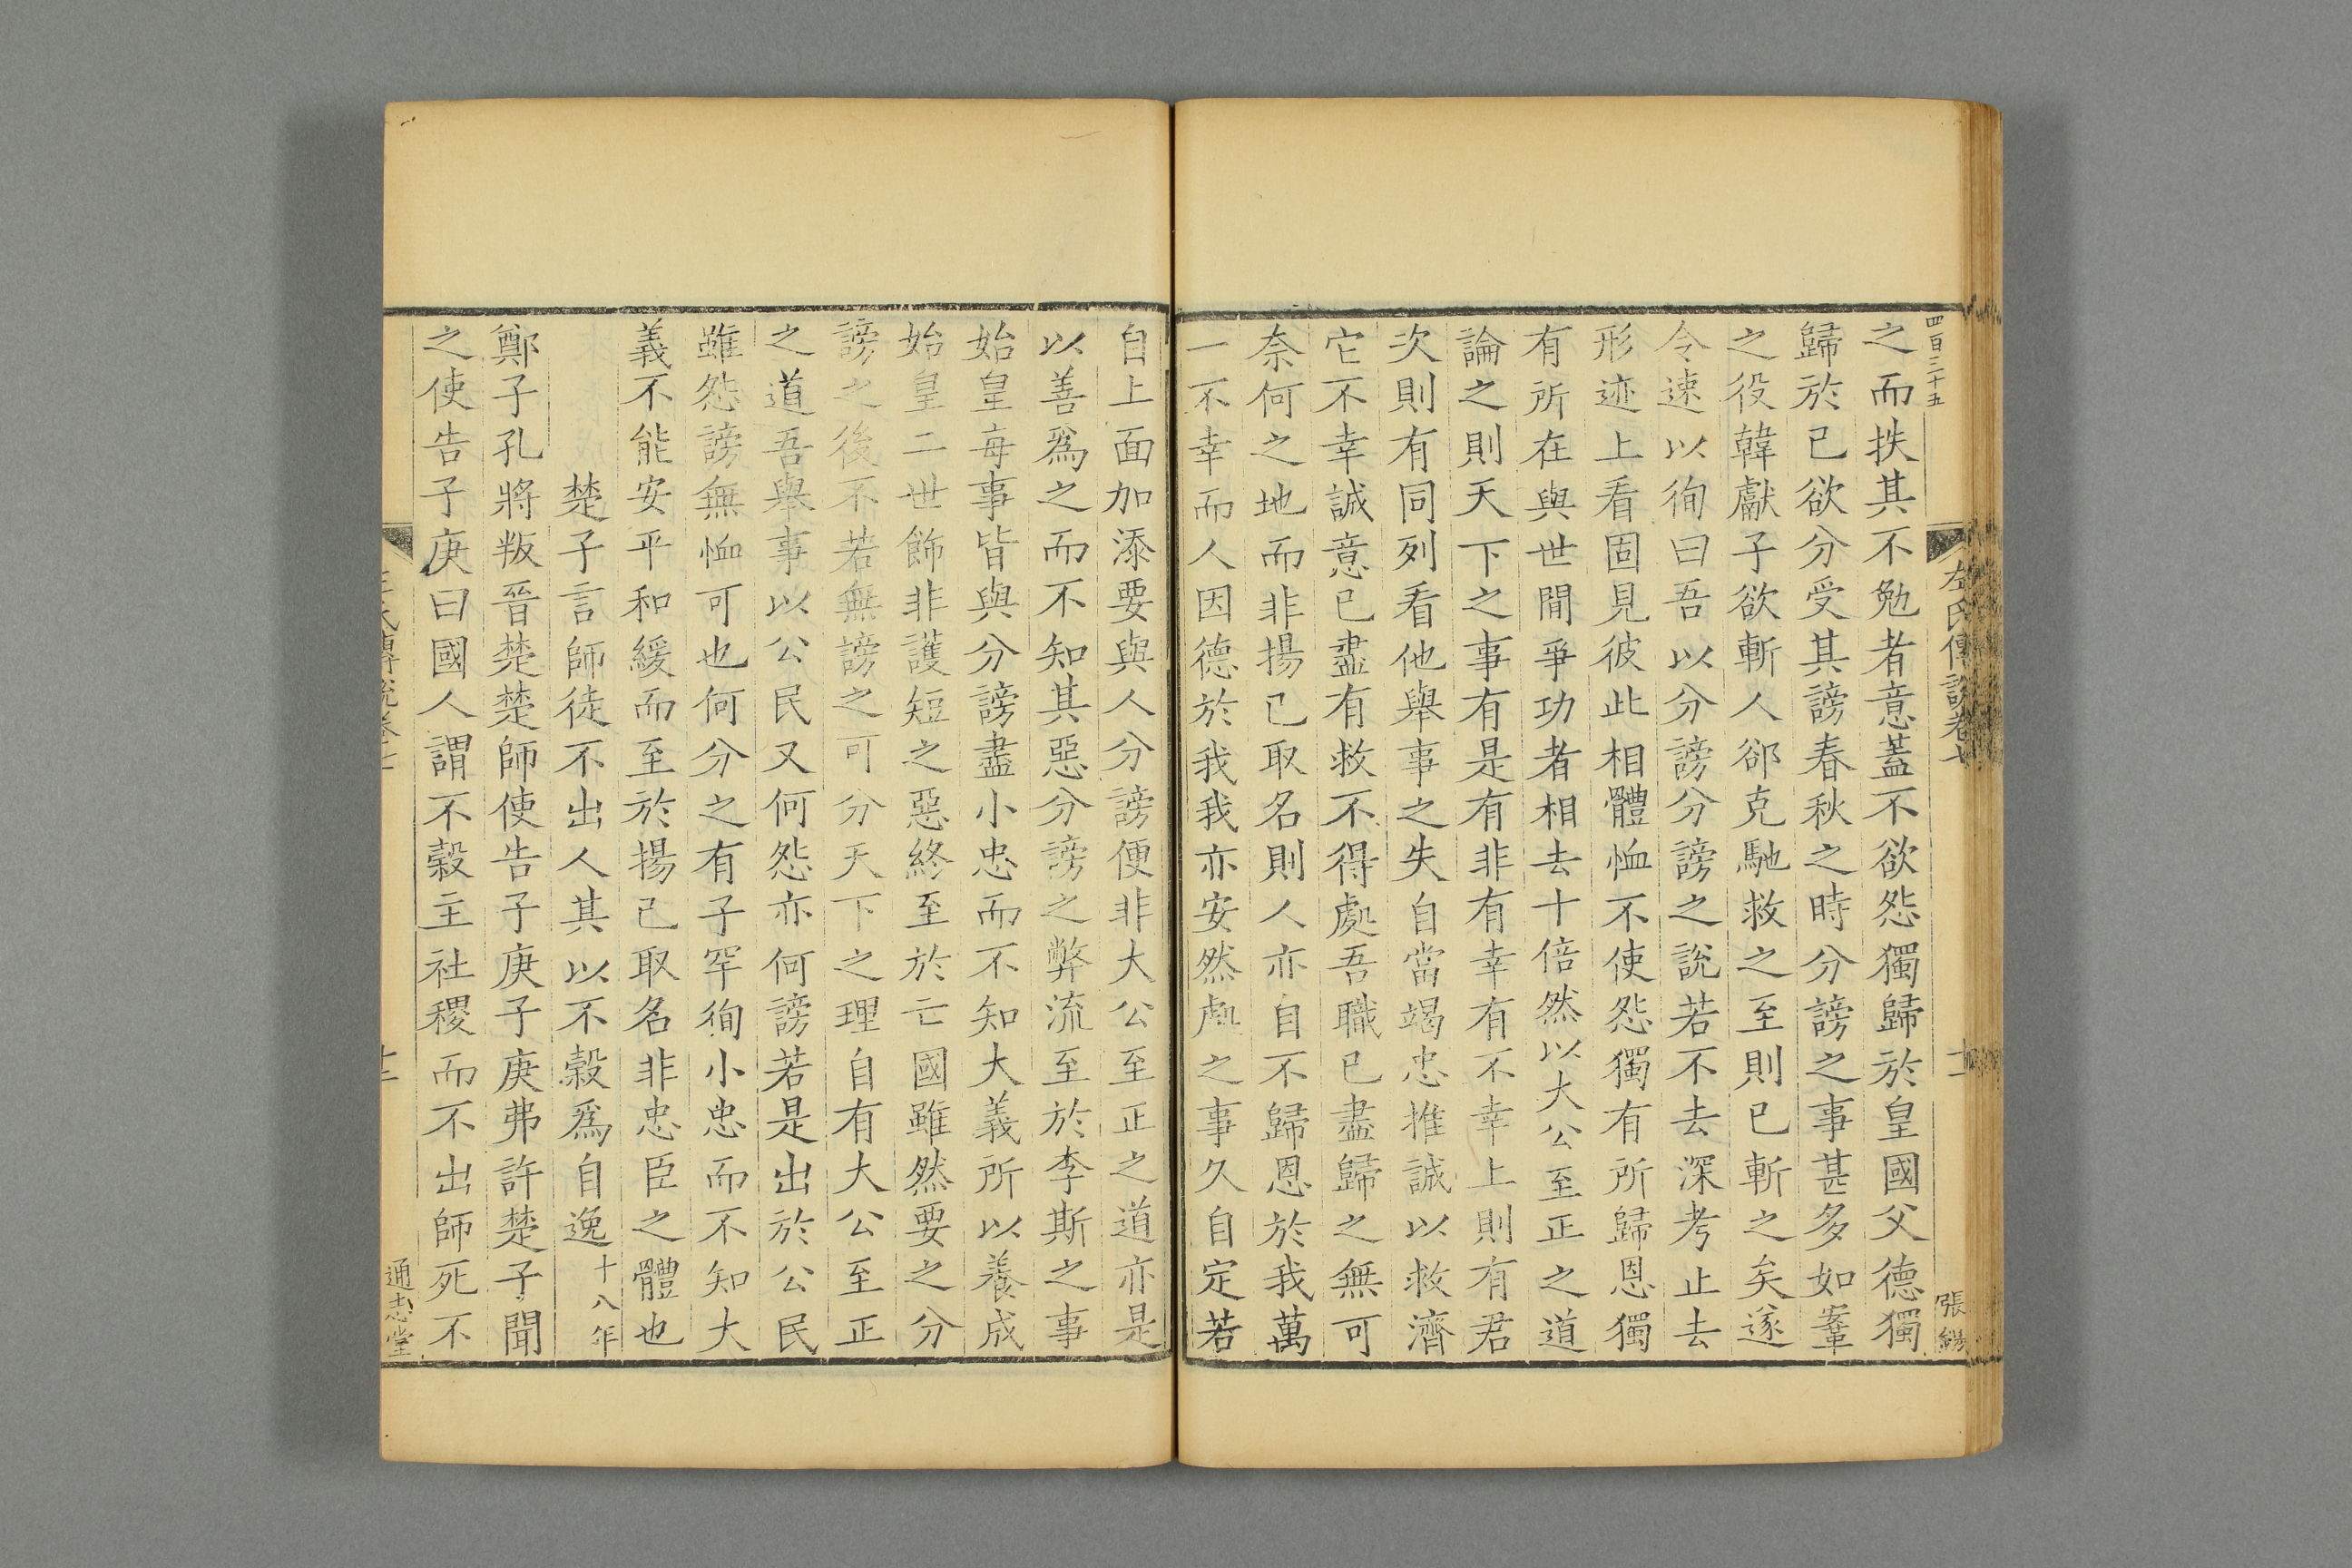 四百二十五
左氏傳說卷七
十一
張
之而抶其不勉者意蓋不欲怨獨歸於皇國父德獨
歸於已欲分受其謗春秋之時分謗之事甚多如鞌
之役韓獻子欲斬人郤克馳救之至則已斬之矣遂
令速以徇曰吾以分謗分謗之說若不去深考止去
形迹上看固見彼此相體恤不使怨獨有所歸恩獨
有所在與世間爭功者相去十倍然以大公至正之道
論之則天下之事有是有非有幸有不幸上則有君
次則有同列看他舉事之失自當竭忠推誠以救濟
它不幸誠意已盡有救不得處吾職已盡歸之無可
奈何之地而非揚已取名則人亦自不歸恩於我萬
一不幸而人因德於我我亦安然處之事久自定若
自上面加添要與人分謗便非大公至正之道亦是
以善爲之而不知其惡分謗之弊流至於李斯之事
始皇每事皆與分謗盡小忠而不知大義所以養成
始皇二世飾非護短之惡終至於亡國雖然要之分
謗之後不若無謗之可分天下之理自有大公至正
之道吾舉事以公民又何怨亦何謗若是出於公民
雖怨謗無恤可也何分之有子罕徇小忠而不知大
義不能安平和緩而至於揚已取名非忠臣之體也
楚子言師徒不出人其以不穀爲自逸十八年
鄭子孔將叛晉楚楚師使告子庚子庚弗許楚子聞
之使告子庚曰國人謂不穀主社稷而不出師死不
通志堂